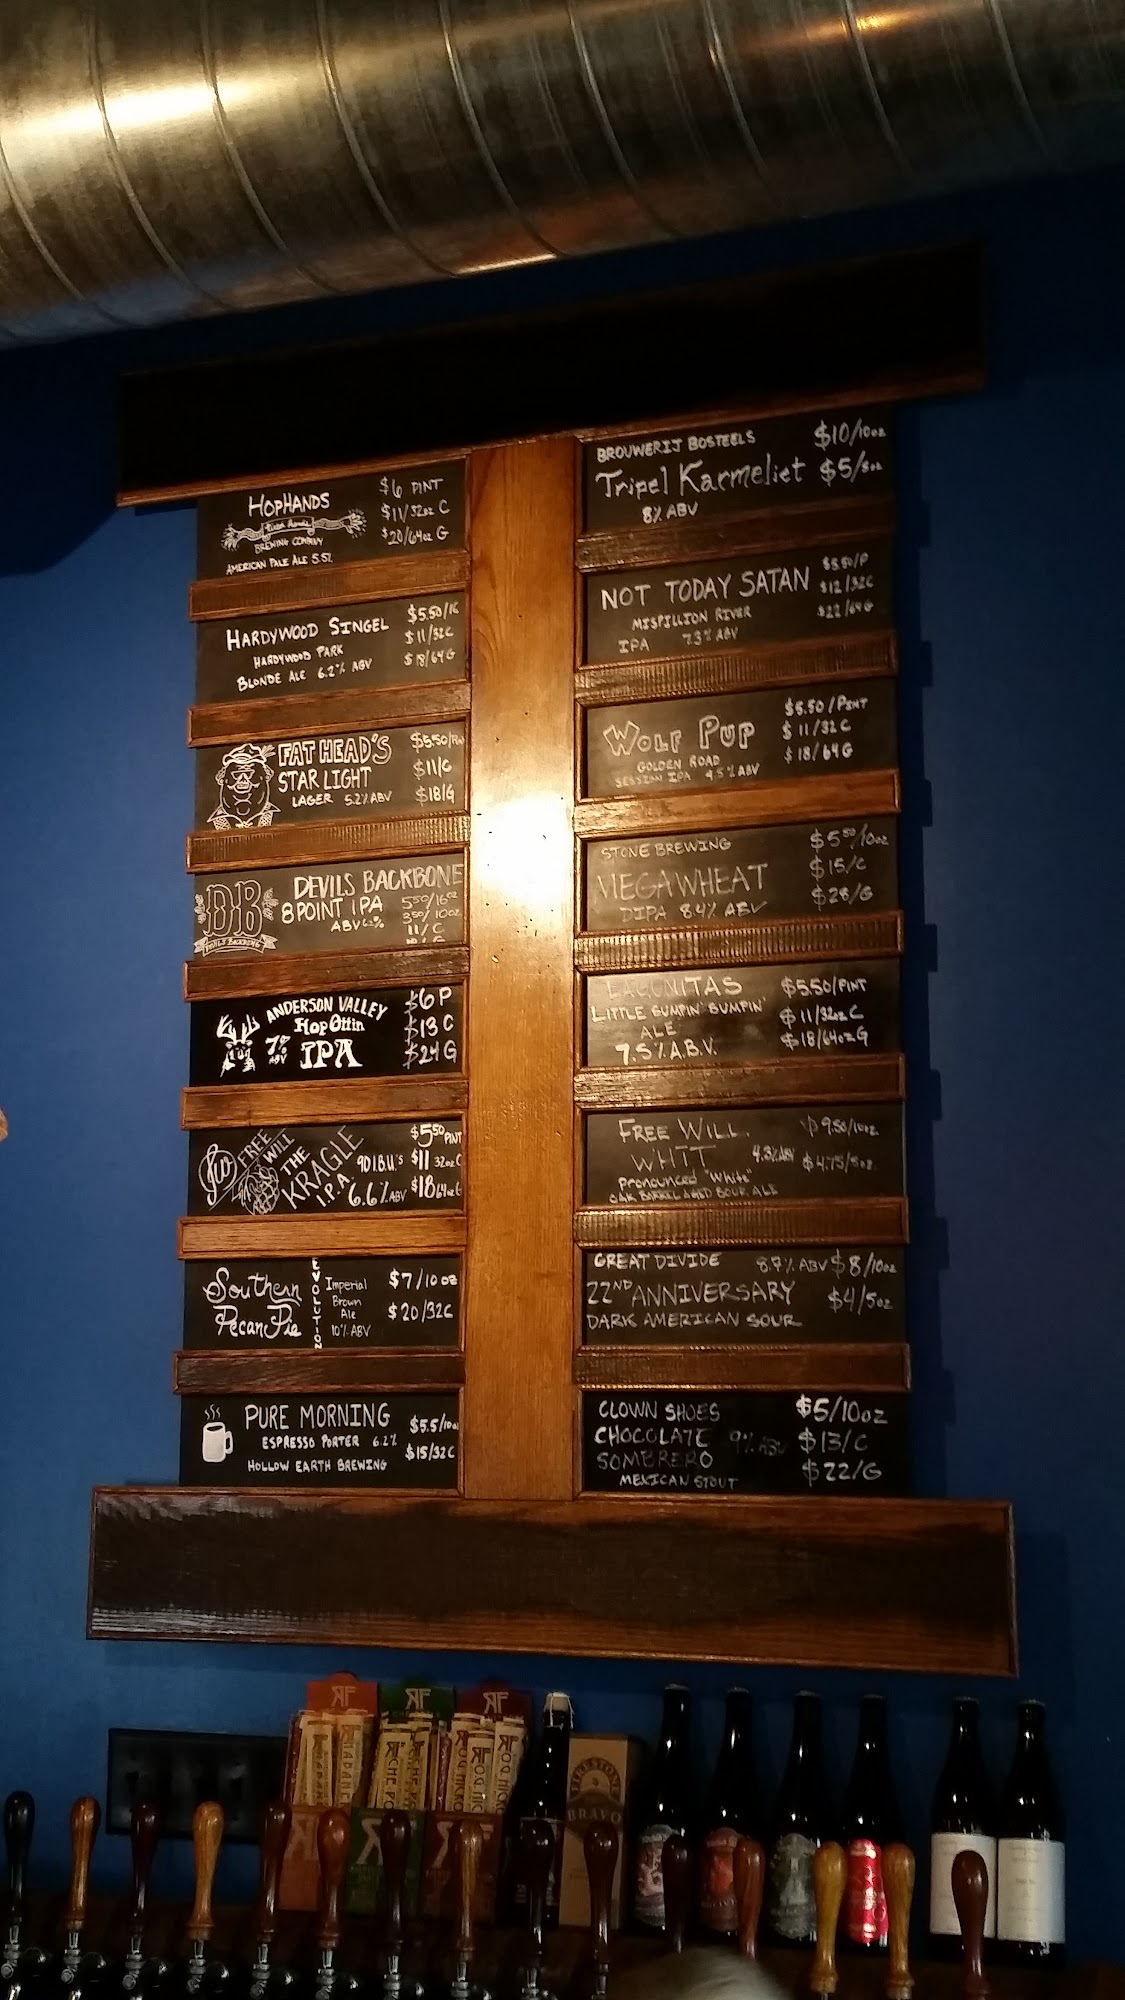 HOPHANDS
$6 PINT
$11/32oz C
$20/64oz G
BREWING COMPANY
AMERICAN PALE ALE 5.5%
HARDYWOOD SINGEL
HARDYWOOD PARK
BLONDE ALE 6.2% ABV
$5.50/16
$11/32C
$18/64G
FAT HEAD'S
STAR LIGHT
LAGER 5.2% ABV
$5.50/Pin
$11/C
$18/G
DB
DEVILS BACKBONE
DEVILS BACKBONE
8 POINT IPA
ABV
5.50/16oz
3.50/10oz
11/C
ANDERSON VALLEY
Hop Ottin
7% ABV
IPA
$6 P
$13 C
$24 G
FREE WILL
THE KRAGLE
I.P.A.
90 I.B.U.'S
6.6% ABV
$5.50 PINT
$11 32oz C
$18 64oz G
Southern
Pecan Pie
EVOLUTION
Imperial
Brown
Ale
10% ABV
$7/10oz
$20/32C
PURE MORNING
ESPRESSO PORTER 6.2%
HOLLOW EARTH BREWING
$5.5/10oz
$15/32C
BROUWERIJ BOSTEELS
Tripel Karmeliet
8% ABV
$10/10oz
$5/5oz
NOT TODAY SATAN
MISPILLION RIVER
IPA 7.3% ABV
$5.50/P
$12/32C
$22/64G
WOLF PUP
GOLDEN ROAD
SESSION IPA 4.5% ABV
$5.50/PINT
$11/32C
$18/64G
STONE BREWING
MEGAWHEAT
DIPA 8.4% ABV
$5.50/10oz
$15/C
$28/G
LAGUNITAS
LITTLE SUMPIN' SUMPIN'
ALE
7.5% A.B.V.
$5.50/PINT
$11/32oz C
$18/64oz G
FREE WILL
WHIT
pronounced "White"
OAK BARREL AGED SOUR ALE
4.3% ABV
$4.75/5oz
GREAT DIVIDE
22ND ANNIVERSARY
DARK AMERICAN SOUR
8.7% ABV
$8/10oz
$4/5oz
CLOWN SHOES
CHOCOLATE
SOMBRERO
MEXICAN STOUT
9% ABV
$5/10oz
$13/C
$22/G
RF
RF
RF
BRAVO